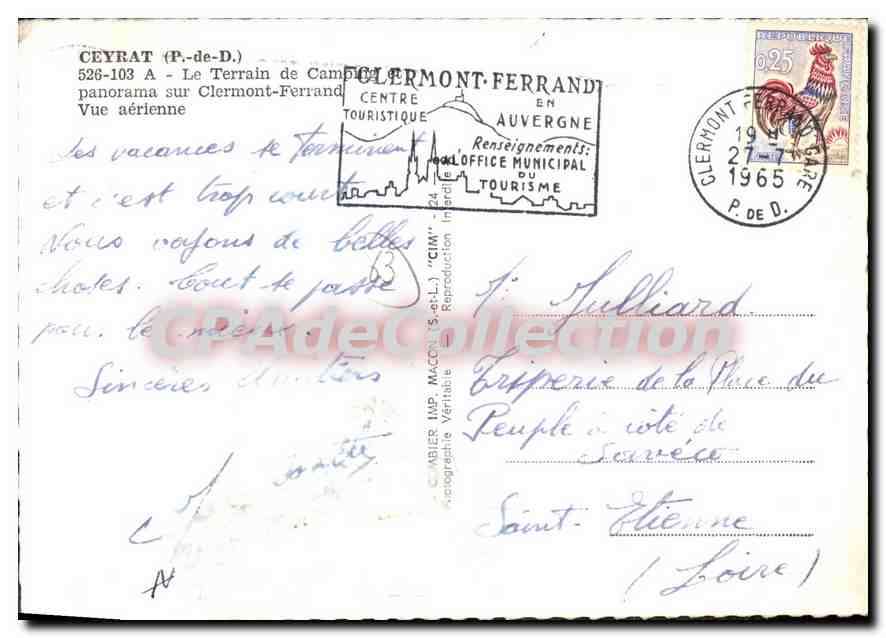 CEYRAT (P.-de-D.)
526-103 A - Le Terrain de Camping et
panorama sur Clermont-Ferrand
Vue aérienne
CLERMONT-FERRAND
CENTRE
TOURISTIQUE
EN
AUVERGNE
Renseignements:
L'OFFICE MUNICIPAL
DU
TOURISME
REPUBLIQUE FRANÇAISE
0,25
CLERMONT FERRAND GARE
19 H
27-7
1965
P. DE D.
Les vacances se terminent
et c'est trop court
Nous voyons de belles
choses. Tout se passe
pour le mieux.
Sincères Amitiés
13
COMBIER IMP. MACON (S.-et-L.) "CIM" - 24
Photographie Véritable - Reproduction Interdite
Mr Julliard.
Triperie de la Place du
Peuple à côté de
Saint-Etienne
(Loire)
CPAdeCollection